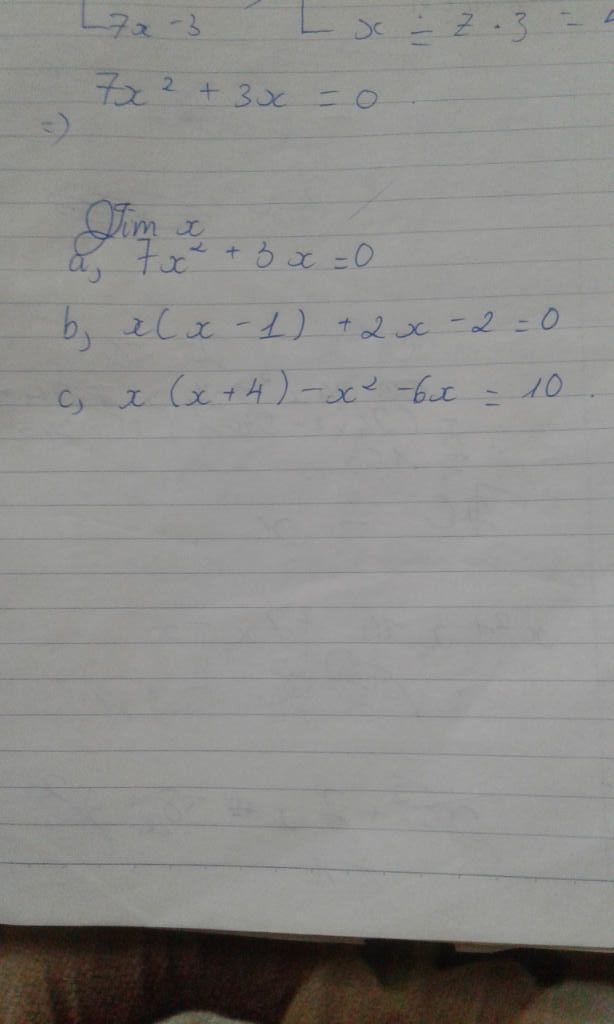 7x - 3 x = 7 . 3 =
7x² + 3x = 0
=)
Tìm x
a, 7x² + 3x = 0
b, x(x - 1) + 2x - 2 = 0
c, x (x + 4) - x² - 6x = 10.